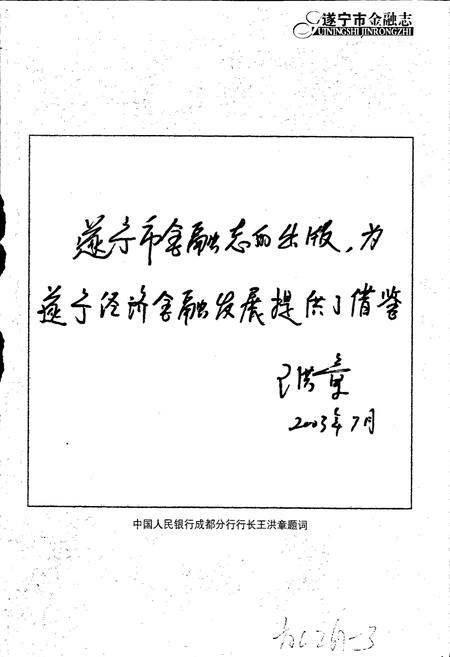 遂宁市金融志
SUININGSHI JINRONGZHI
遂宁市金融志的出版，为
遂宁经济金融发展提供了借鉴
王洪章
2003年7月
中国人民银行成都分行行长王洪章题词